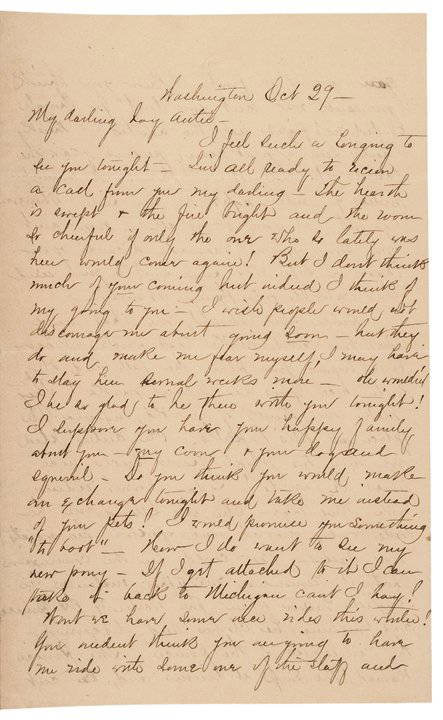 Washington Oct 29 —
My darling boy Autie —
I feel such a longing to
see you tonight — I'm all ready to receive
a call from you my darling — The hearth
is swept & the fire bright and the room
so cheerful if only the one who so lately was
here would come again! But I don't think
much of your coming but indeed I think of
my going to you — I wish people would not
discourage me about going soon — but they
do and make me fear myself, I may have
to stay here several weeks more — Oh wouldn't
I be so glad to be there with you tonight!
I suppose you have your happy family
about you — my Coon & your dog and
squirrel — Do you think you would make
an exchange tonight and take me instead
of your pets? I would promise you something
"to boot" — How I do want to see my
new pony. If I get attached to it I can
take it back to Michigan can't I hay?
Wont we have some nice rides this winter!
You needent think you are going to have
me ride with some one of the staff and